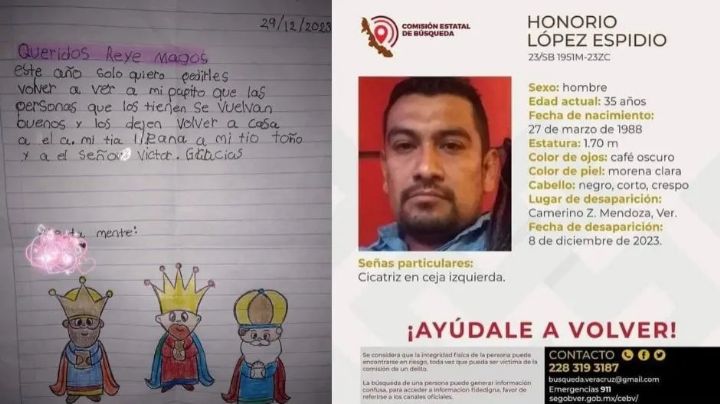 29/12/2023
Queridos Reye Magos
este año solo quiero pedirles
volver a ver a mi papito que las
personas que los tienen se vuelvan
buenos y los dejen volver a casa
a el a mi tia Ileana a mi tio toño
y a el Señor Victor. Gracias
mente:
COMISIÓN ESTATAL
DE BÚSQUEDA
HONORIO
LÓPEZ ESPIDIO
23/SB 1951M-23ZC
Sexo: hombre
Edad actual: 35 años
Fecha de nacimiento:
27 de marzo de 1988
Estatura: 1.70 m
Color de ojos: café oscuro
Color de piel: morena clara
Cabello: negro, corto, crespo
Lugar de desaparición:
Camerino Z. Mendoza, Ver.
Fecha de desaparición:
8 de diciembre de 2023.
Señas particulares:
Cicatriz en ceja izquierda.
¡AYÚDALE A VOLVER!
Se considera que la integridad física de la persona puede
encontrarse en riesgo, toda vez que puede ser víctima de la
comisión de un delito.
La búsqueda de una persona puede generar información
confusa, para acceder a información fidedigna, favor de
referirse a los canales oficiales.
CONTACTO
228 319 3187
busqueda.veracruz@gmail.com
Emergencias 911
segobver.gob.mx/cebv/